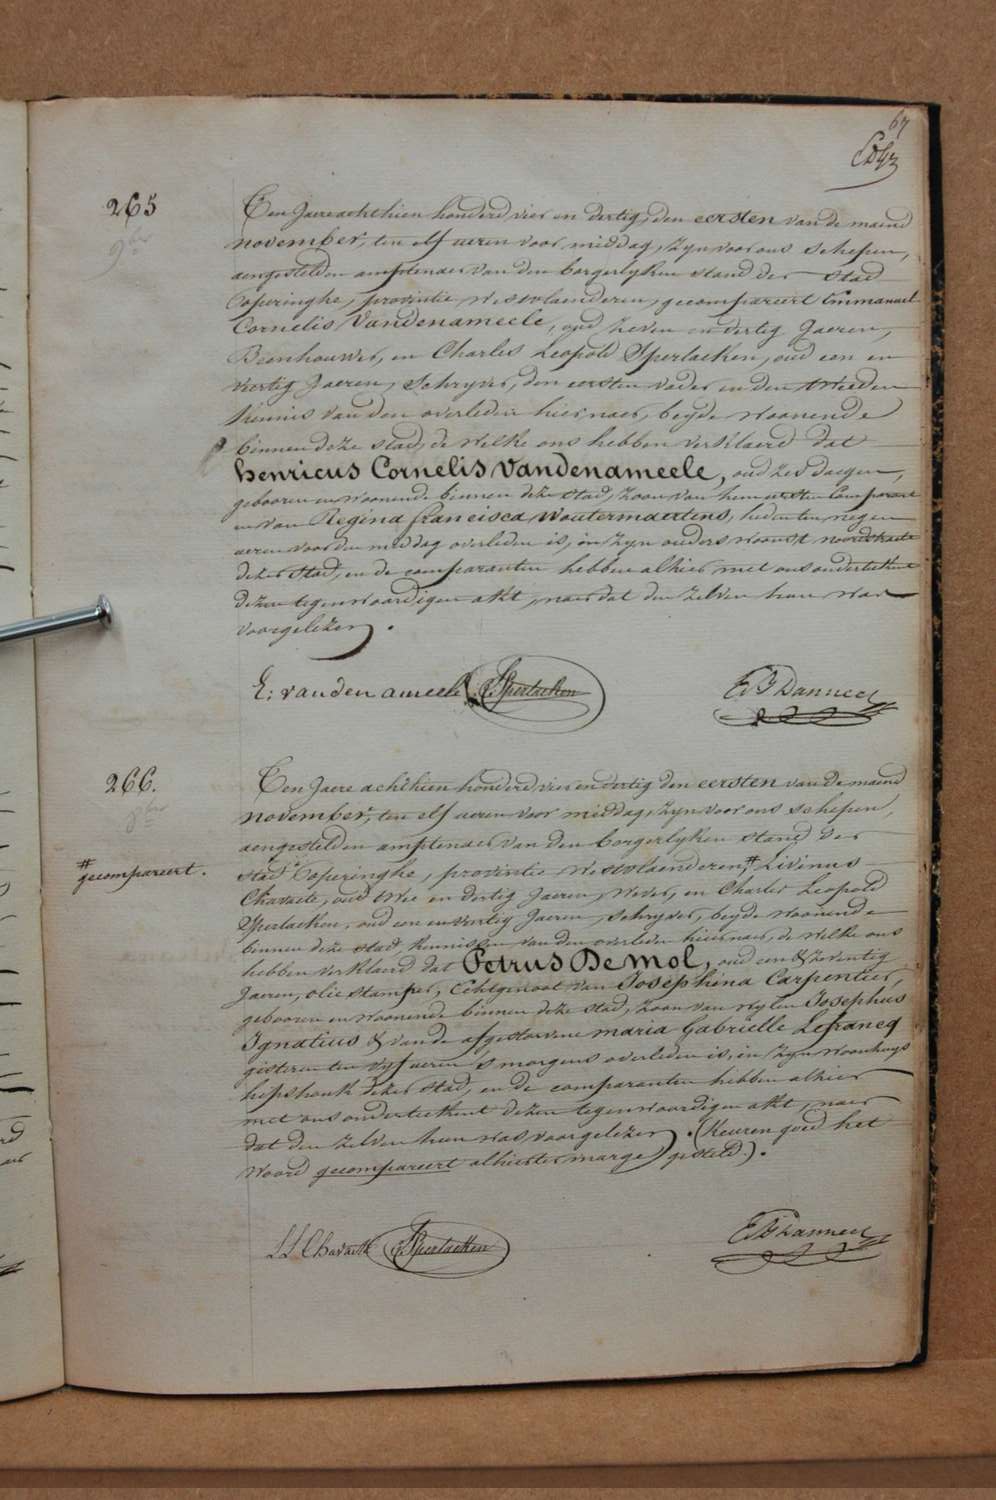 67
265
9ber
Den Jaere achthien honderd vier en dertig, den eersten van de maend
november, ten elf ueren voor middag, zyn voor ons schepen,
aengestelden amptenaer van den borgerlyken stand der stad
Poperinghe, provintie Westvlaenderen, gecompareert Emmanuel
Cornelis Vandenameele, oud zeven en dertig Jaeren,
Beenhouwer, en Charles Leopold Sperlaeken, oud een en
viertig Jaeren, Schryver, den eersten vader en den tweeden
kennis van den overleden hiernaer, beyde woonende
binnen deze stad, de welke ons hebben verklaerd dat
henricus Cornelis Vandenameele, oud zes daegen,
gebooren en woonende binnen deze stad, zoon van hem eersten Comparant
en van Regina francisca Woutermaertens, heden ten negen
ueren voor den middag overleden is, in zyn ouders woonst noordstraete
dezer stad, en de comparanten hebben alhier met ons onderteekent
dezen tegenwoordigen akt, naer dat den zelven hun was
voorgelezen.
E: vanden ameele Sperlaeken
266.
8ber
Den Jaere achthien honderd vier en dertig den eersten van de maend
november, ten elf ueren voor middag, zyn voor ons schepen,
aengestelden amptenaer van den borgerlyken stand der
stad Poperinghe, provintie Westvlaenderen,# Livinus
# gecompareert.
Chavaete, oud twee en dertig Jaeren, wever, en Charles Leopold
Sperlaeken, oud een en viertig Jaeren, schryver, beyde woonende
binnen deze stad kennissen van den overleden hiernaer, de welke ons
hebben verklaerd dat Petrus De mol, oud een & zeventig
Jaeren, olie stamper, Echtgenoot van Josephina Carpentier,
gebooren en woonende binnen deze stad, zoon van wylen Josephus
Ignatius & van de afgestorvene maria Gabrielle Lefrancq
gisteren ten vyf ueren 's morgens overleden is, in zyn woonhuys
hipshouk dezer stad, en de comparanten hebben alhier
met ons onderteekent dezen tegenwoordigen akt, naer
dat den zelven hun was voorgelezen. (Keuren goed het
woord gecompareert alhier ter marge gesteld.).
LL Chavaete Sperlaeken